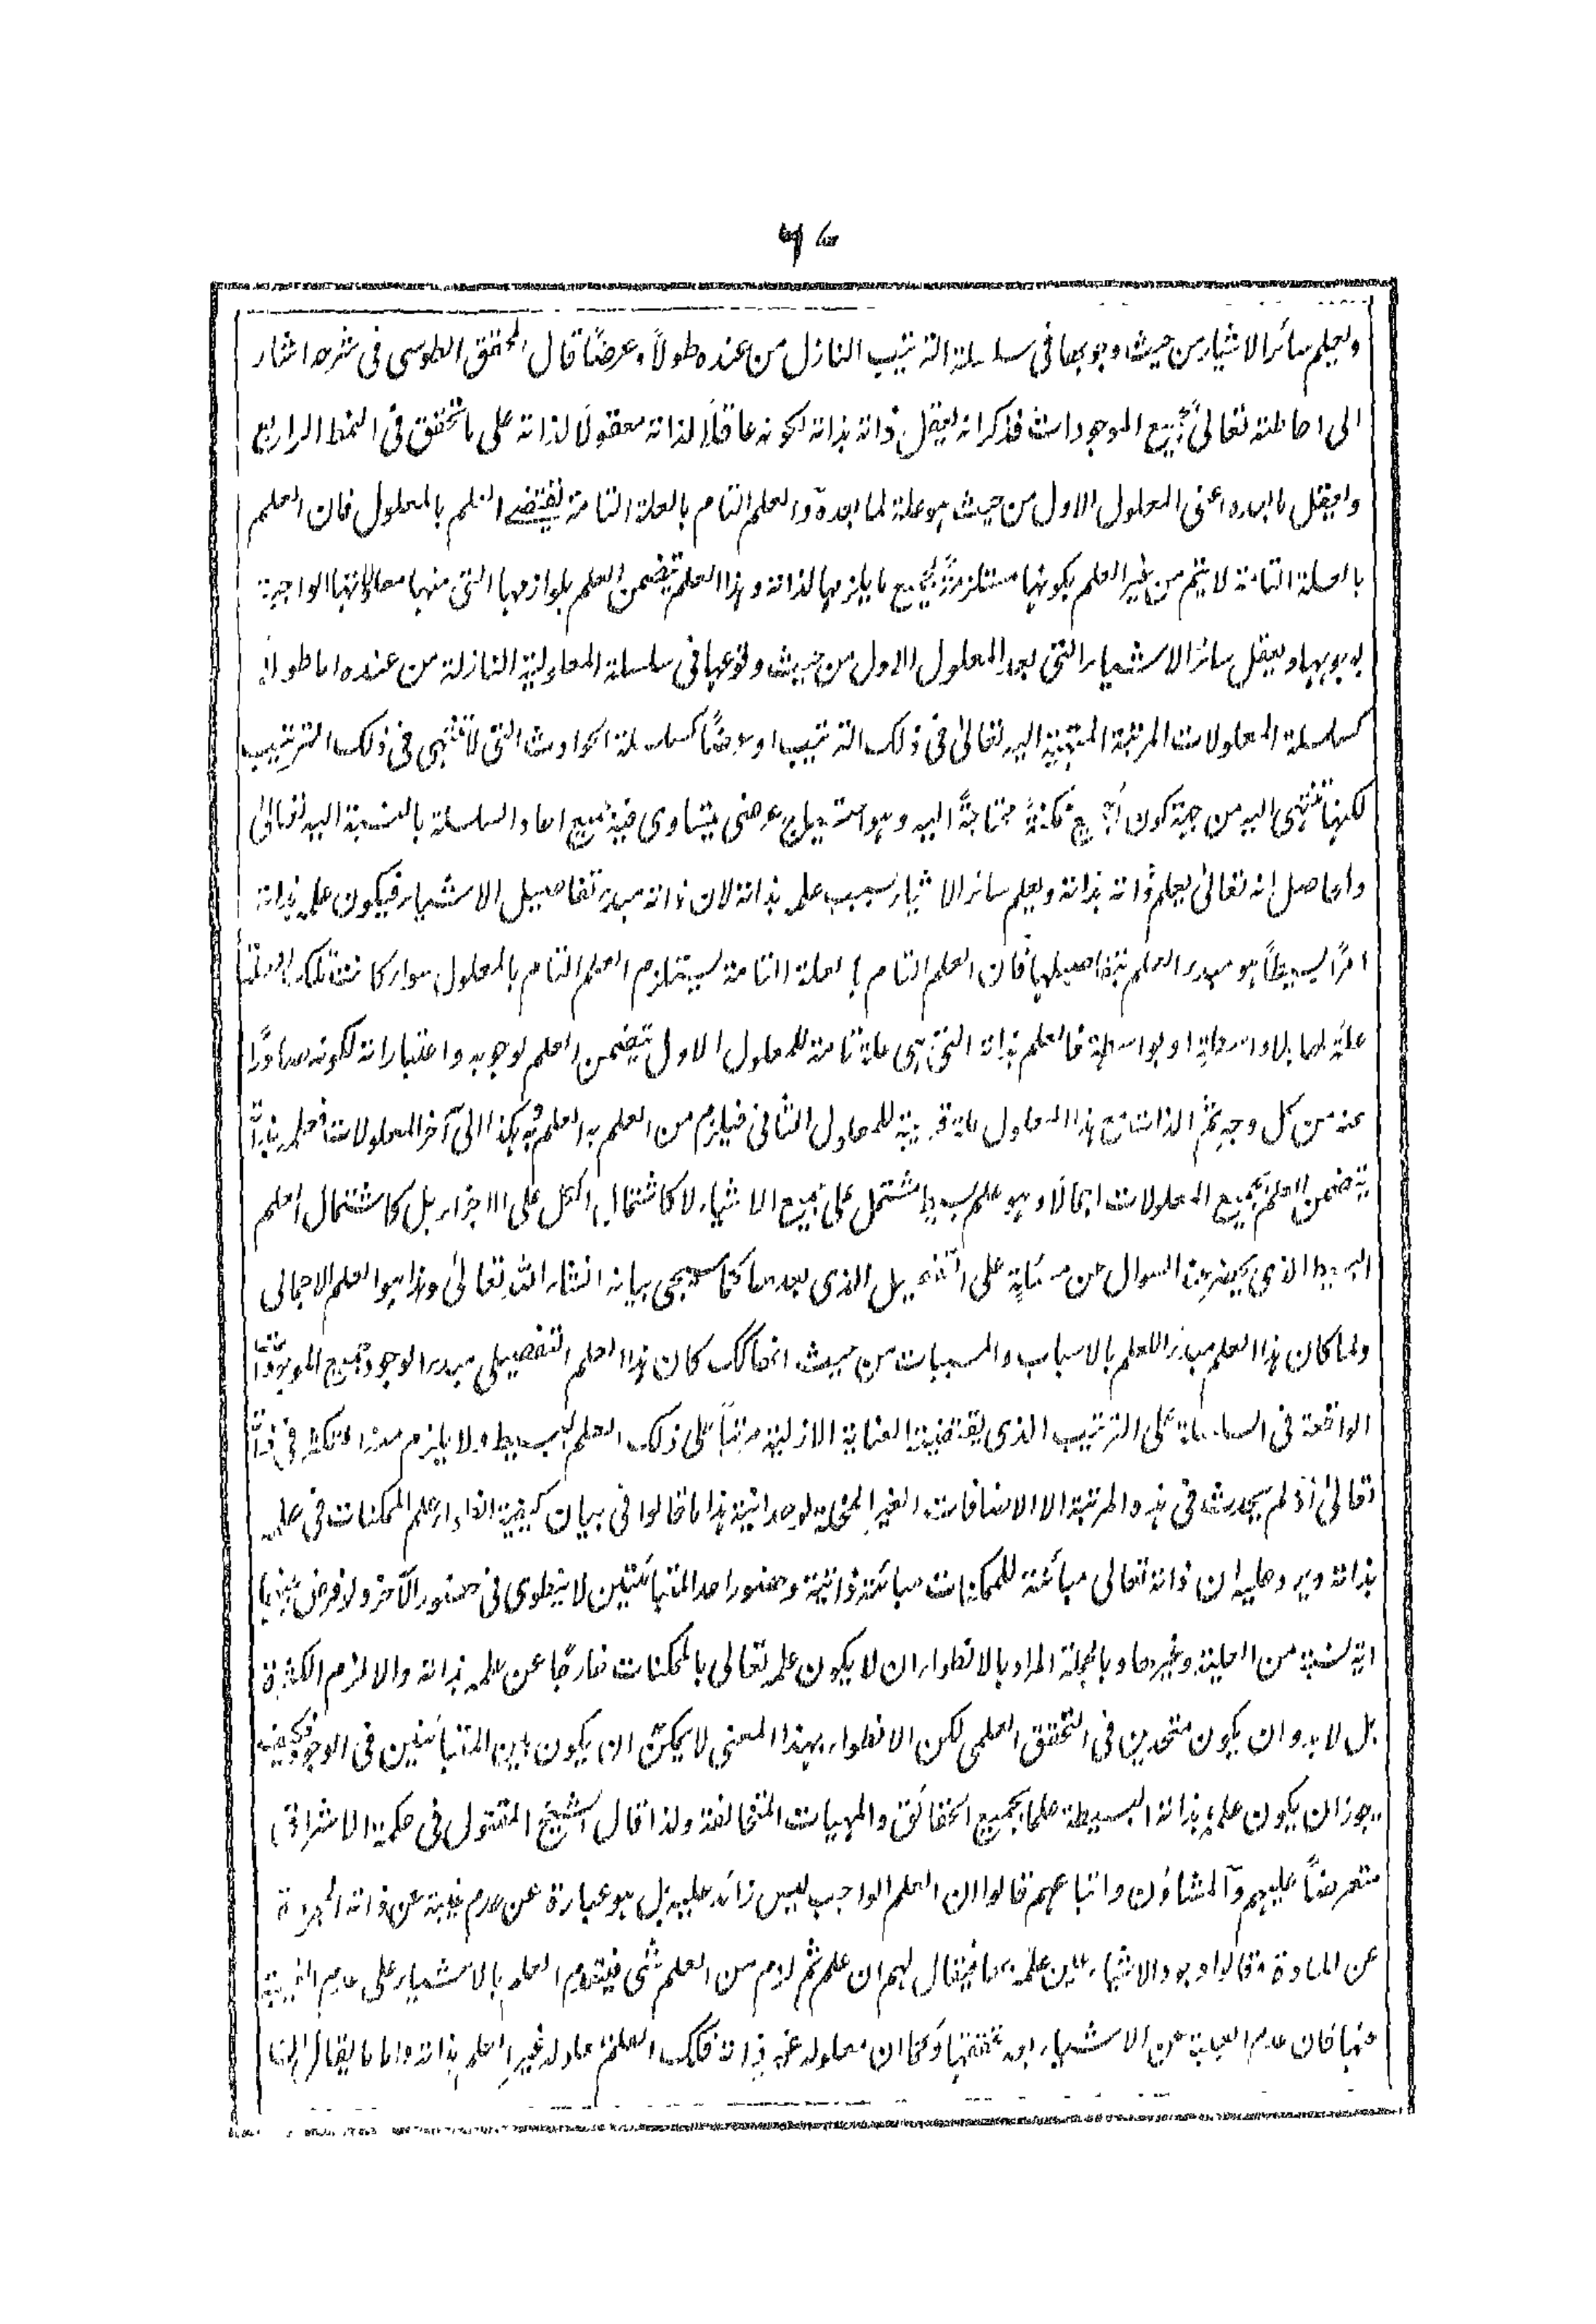 ويعلم سائر الاشياء من حيث وجوبها فى سلسلة الترتيب النازل من عنده طولاً وعرضًا قال المحقق الطوسى فى شرحه اشار
الى احاطته تعالىٰ بجميع الموجودات فذكر انه يعقل ذاته بذاته لكونه عاقلاً لذاته معقولًا لذاته على ما تحقق فى النمط الرابع
ويعقل ما بعده اعنى المعلول الاول من حيث هو علة لما بعده والعلم التام بالعلة التامة يقتضى العلم بالمعلول فان العلم
بالعلة التامة لا يتم من غير العلم بكونها مستلزمة لجميع ما يلزمها لذاته وهذا العلم يتضمن العلم بلوازمها التى منها معلولاتها الواجبة
بوجوبها ويعقل سائر الاشياء التى بعد المعلول الاول من حيث وقوعها فى سلسلة المعلولية النازلة من عنده اما طولاً
كسلسلة المعلولات المرتبة المنتهية اليه تعالىٰ فى ذلك الترتيب او عرضًا كسلسلة الحوادث التى لا تنتهى فى ذلك الترتيب
لكنها تنتهى اليه من جهة كون الجميع ممكنةً محتاجةً اليه وهو احتياج عرضى يتساوى فيه جميع احاد السلسلة بالنسبة اليه تعالىٰ
والحاصل انه تعالىٰ يعلم ذاته بذاته ويعلم سائر الاشياء بسبب علمه بذاته لان ذاته مبدء تفاصيل الاشياء فيكون علمه بذاته
امرًا بسيطاً هو مبدء العلم بتفاصيلها فان العلم التام بالعلة التامة يستلزم العلم التام بالمعلول سواء كانت تلك العلة
علة لها بلا واسطة او بواسطة فالعلم بذاته التى هى علة تامة للمعلول الاول يتضمن العلم بوجوبه واعتباراته لكونه صادرًا
عنه من كل وجه ثم الذات مع هذا المعلول علة قريبة للمعلول الثانى فيلزم من العلم به العلم به وهكذا الى آخر المعلولات فعلمه بذاته
يتضمن العلم بجميع المعلولات اجمالًا وهو علم بسيط مشتمل على جميع الاشياء لا كاشتمال الكل على الاجزاء بل كاشتمال العلم
البسيط الذى يحضر عند السوال عن مسئلة على التفصيل الذى بعدها كما سيجئ بيانه انشاء الله تعالىٰ وهذا هو العلم الاجمالى
ولما كان هذا العلم مبدء للعلم بالاسباب والمسببات من حيث انها كك كان هذا العلم التفصيلى مبدء لوجود جميع الموجودات
الواقعة فى السلسلة على الترتيب الذى يقتضيه العناية الازلية مرتباً على ذلك العلم البسيط ولا يلزم منه التكثر فى ذاته
تعالىٰ اذ لم يحدث فى هذه المرتبة الا الاضافات الغير المخلة لوحدانيته هذا ما قالوا فى بيان كيفية انطواء علم الممكنات فى علمه
بذاته ويرد عليه ان ذاته تعالى مبائنة للممكنات مبائنة ذاتية وحضور احد المتبائنين لا ينطوى فى حضور الآخر ولو فرض بينهما
اية نسبة من العلية وغيرها وبالجملة المراد بالانطواء ان لا يكون علمه تعالى بالممكنات خارجًا عن علمه بذاته والا لزم الكثرة
بل لا بد وان يكون متحدين فى التحقق العلمى لكن الانطواء بهذا المعنى لا يمكن ان يكون بين المتبائنين فى الوجود فكيف
يجوز ان يكون علمه بذاته البسيطة علما بجميع الحقائق والمهيات المتخالفة ولذا قال الشيخ المقتول فى حكمة الاشراق
متعرضًا عليهم والمشاؤن واتباعهم قالوا ان العلم الواجب ليس زائد عليه بل هو عبارة عن عدم غيبته عن ذاته المجردة
عن المادة وقالوا وجود الاشياء عن علمه بها فيقال لهم ان علم ثم لزم من العلم شئ فيتقدم العلم بالاشياء على عدم الغيبة
عنها فان عدم الغيبة عن الاشياء بعد تحققها وكما ان معلوله غير ذاته فكك العلم بمعلوله غير العلم بذاته واما ما يقال انها